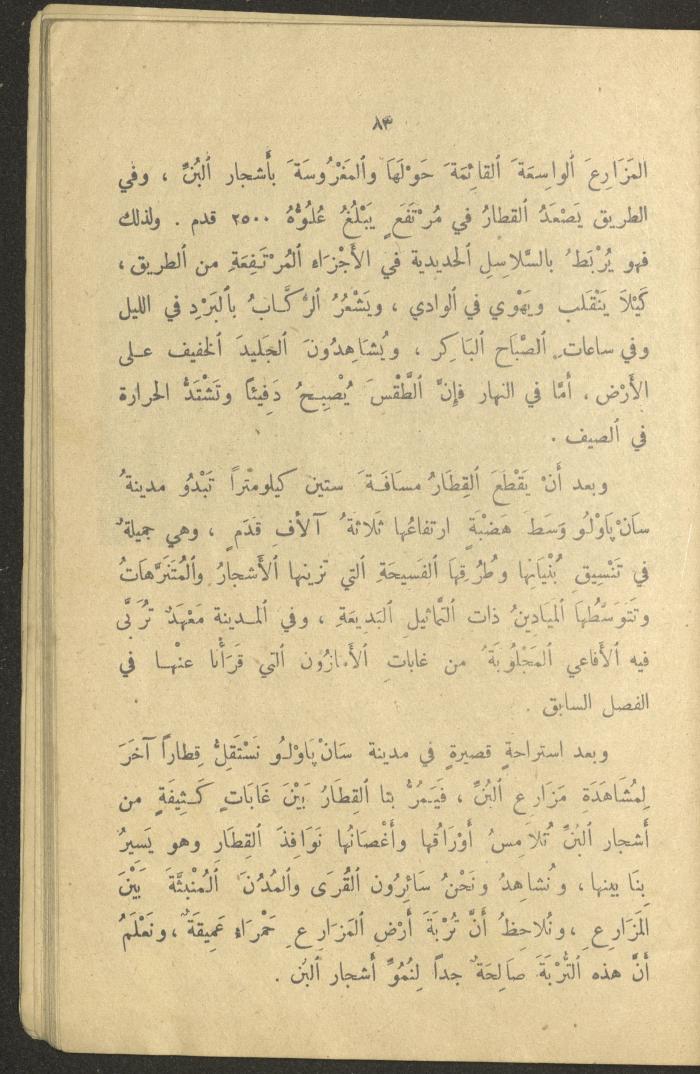 ٨٣
المَزَارِعَ ٱلواسِعَةَ ٱلقائِمَةَ حَوْلَهَا وٱلمَغْرُوسَةَ بأَشجار ٱلبُنِّ ، وفي
الطريق يَصْعَدُ ٱلقطارُ في مُرْتَفَعٍ يَبْلُغُ عُلُوُّهُ ٢٥٠٠ قدم . ولذلك
فهو يُرْبَطُ بالسَّلاسِلِ ٱلحَديدية في الأَجْزَاء ٱلمُرْتَفِعَةِ من ٱلطريق ،
كَيْلاَ يَنْقَلب ويَهْوِي في ٱلوادي ، ويَشْعُرُ ٱلرُّكَّابُ بٱلبَرْدِ في الليل
وفي ساعات ٱلصَّبَاح ٱلبَاكِر ، ويُشَاهِدُونَ ٱلجَليدَ ٱلخفيف على
الأَرْض ، أَمَّا في النهار فإِنَّ ٱلطَّقْسَ يُصْبِحُ دَفِيئاً وتَشْتَدُّ الحرارة
في ٱلصيف .
وبعد أَنْ يَقْطَعَ ٱلقِطَارُ مسَافَةَ ستين كيلومتراً تَبْدُو مدينةُ
سَانْ پَاوْلُو وَسَطَ هَضْبَةٍ ارتفاعُها ثَلاثَةُ آلافِ قَدَمٍ ، وهي جميلةٌ
في تَنْسِيقِ بُنْيَانِها وطُرُقِهَا ٱلفَسيحَةِ ٱلتي تزينها ٱلأَشجارُ وٱلمُتَنَزَّهَاتُ
وتَتَوَسَّطُهَا ٱلمَيَادِينُ ذات ٱلتَّمَاثيلِ ٱلبَديعَةِ ، وفي ٱلمدينة مَعْهَدٌ تُرَبَّى
فيه ٱلأَفاعي ٱلمَجْلُوبَةُ من غابات ٱلأَمَازُون ٱلتي قَرَأْنَا عنْها في
الفصل السابق .
وبعد استراحةٍ قصيرةٍ في مدينة سَانْ پَاوْلُو نَسْتَقِلُّ قِطاراً آخَرَ
لِمُشَاهَدَة مَزَارِعِ ٱلبُنِّ ، فَيَمُرُّ بنا ٱلقِطَارُ بَيْنَ غَابَاتٍ كَثِيفَةٍ من
أَشجار ٱلبُنِّ تُلامِسُ أَوْرَاقُها وأَغْصَانُها نَوَافِذَ ٱلقِطَارِ وهو يَسِيرُ
بِنَا بينها ، ونُشاهِدُ ونَحْنُ سَائِرُون ٱلقُرَى وٱلمُدُنَ ٱلمُنْبَثَّةَ بَيْنَ
المَزَارِعِ ، ونُلاحِظُ أَنَّ تُرْبَةَ أَرْضِ ٱلمَزَارِعِ حَمْرَاء عَمِيقَةٌ ، ونَعْلَمُ
أَنَّ هذه ٱلتُّرْبَةَ صَالِحَةٌ جداً لِنُمُوِّ أَشجار ٱلبُن .